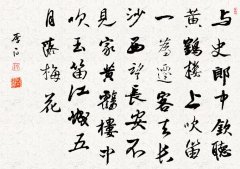 与史郎中欽聽
黄鶴樓上吹笛
一為遷客去長
沙西望長安不
見家黄鶴樓中
吹玉笛江城五
月落梅花